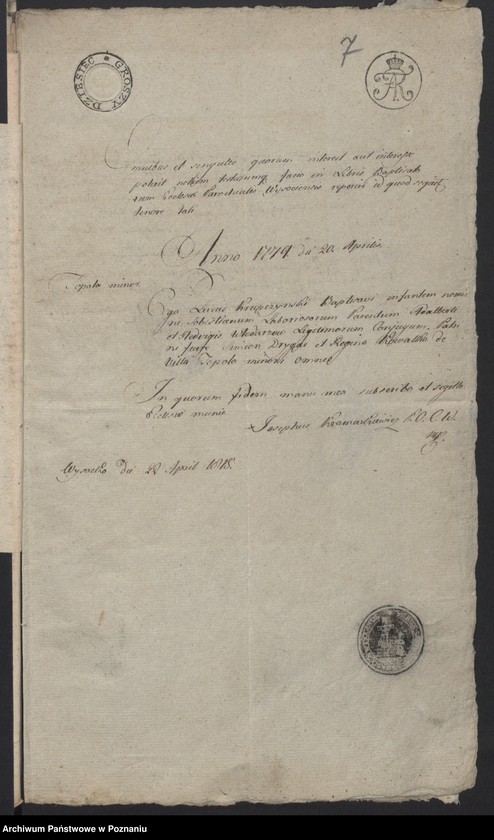 DZIESIĘĆ GROSZY
7
Omnibus et singulis quorum interest aut interesse
poterit notum testatumq facio in Libris Baptisat
rum Ecclesiæ Parochialis Wysocensis reperiri id quod sequit
tenore tali
Anno 1774 die 20 Aprilis
Topola minor
Ego Lucas Krupczynski Baptisavi infantem nomi
ne Sebastianum Laboriosorum Parentum Adalberti
et Hedvigis Legitimorum Conjugum. Patri
ni fuere Simeon Drygas et Regina Kowalka de
Villa Topola minori omnes
In quorum fidem manu mea subscribo et sigillo
Ecclesiæ munio
Josephus
mp
Wysocko die 28 April 1818
Archiwum Państwowe w Poznaniu